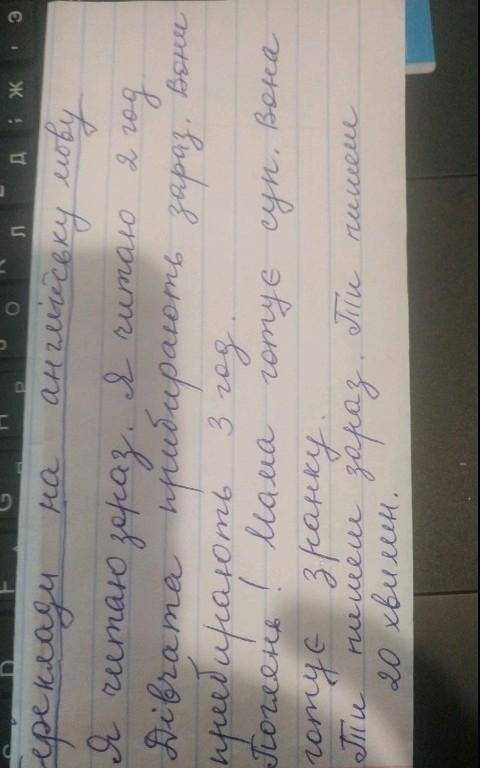 переклади на англійську мову
Я читаю зараз. Я читаю 2 год.
Дівчата прибирають зараз. Вони
прибирають 3 год.
Поглянь! Мама готує суп. Вона
готує зранку.
Ти пишеш зараз. Ти пишеш
20 хвилин.